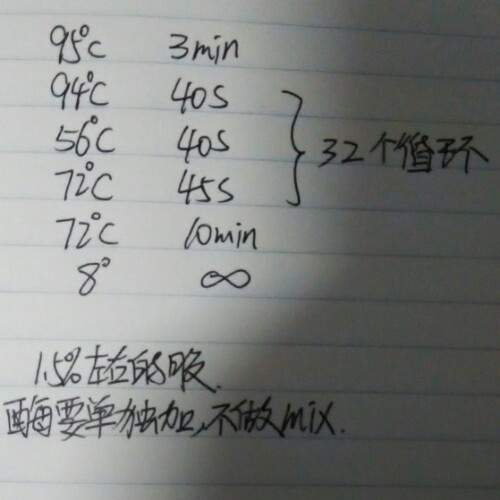 95°C 3min
94°C 40S
56°C 40S
72°C 45S
32个循环
72°C 10min
8° ∞
1.5%左右的胶.
酶要单独加,不做mix.